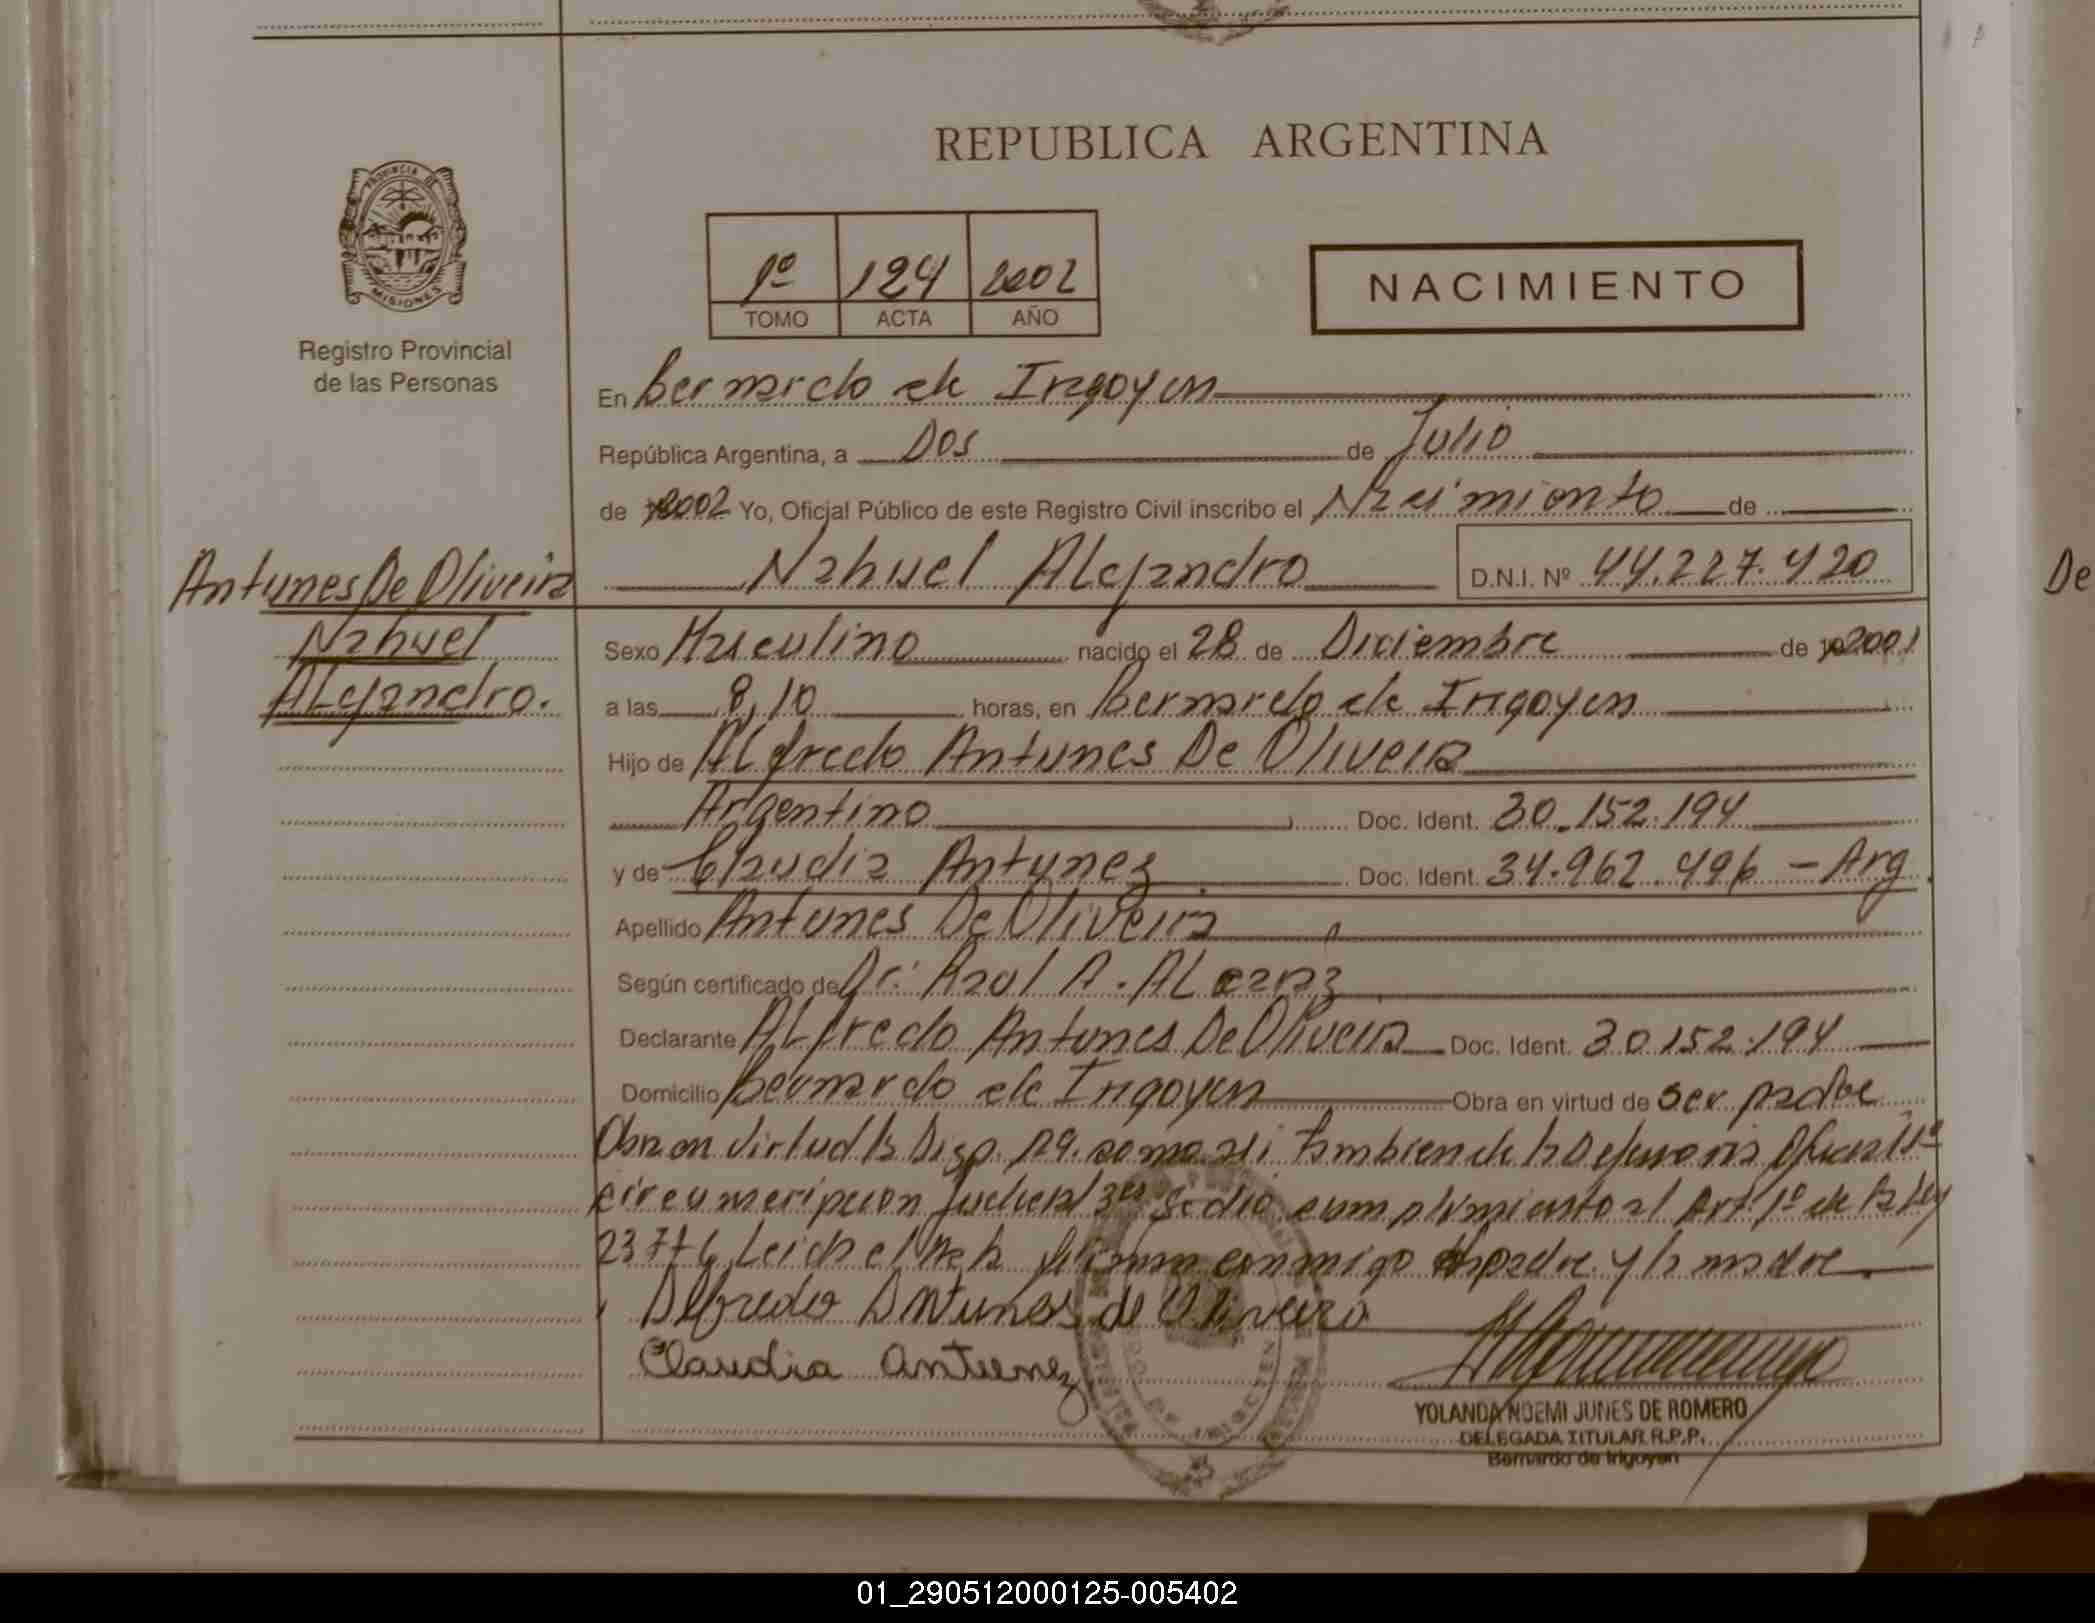 REPUBLICA ARGENTINA
PROVINCIA DE
MISIONES
Registro Provincial
de las Personas
1º 124 2002
TOMO ACTA AÑO
NACIMIENTO
En Bernardo de Irigoyen
República Argentina, a Dos de Julio
de 2002 Yo, Oficial Público de este Registro Civil inscribo el Nacimiento de
Nahuel Alejandro D.N.I. Nº 44.227.420
Antunes De Oliveira
Nahuel
Alejandro.
Sexo Masculino nacido el 28 de Diciembre de 2001
a las 8,10 horas, en Bernardo de Irigoyen
Hijo de Alfredo Antunes De Oliveira
Argentino Doc. Ident. 30.152.194
y de Claudia Antunez Doc. Ident. 34.962.496 - Arg.
Apellido Antunes De Oliveira
Según certificado de Dr: Raul A. Alcaraz
Declarante Alfredo Antunes De Oliveira Doc. Ident. 30.152.194
Domicilio Bernardo de Irigoyen Obra en virtud de ser padre
Obra en virtud la Disp. como asi tambien de la Defensoria Oficial
circunscripcion Judicial 3ra se dio cumplimiento al Art. 1º de la Ley
23776 Leida el Acta firman conmigo el padre y la madre.
Alfredo Antunes de Oliveira
Claudia Antunez
YOLANDA NOEMI JUNES DE ROMERO
DELEGADA TITULAR R.P.P.
Bernardo de Irigoyen
De
01_290512000125-005402